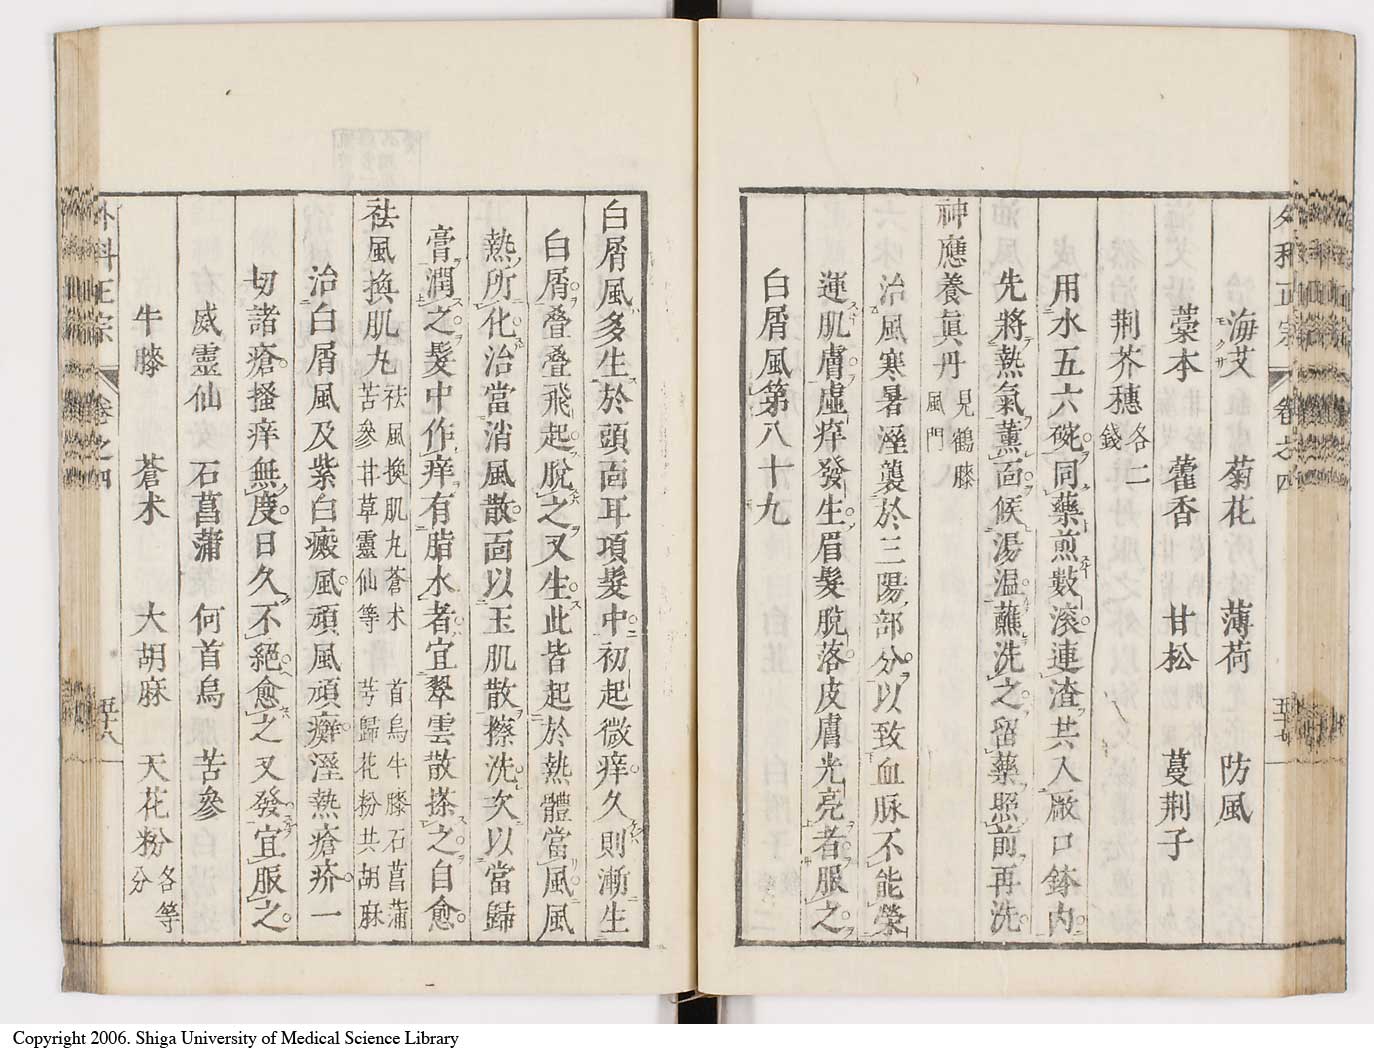 外科正宗 卷之四 五十七
海艾 菊花 薄荷 防風
藁本 藿香 甘松 蔓荆子
荆芥穗各二錢
用水五六碗同藥煎數滾連渣共入敞口鉢内
先將熱氣薰面候湯温蘸洗之留藥照前再洗
神應養眞丹見鶴膝風門
治風寒暑溼襲於三陽部分以致血脉不能榮
運肌膚虛痒發生眉髮脫落皮膚光亮者服之
白屑風第八十九
白屑風多生於頭面耳項髮中初起微痒久則漸生
白屑疊疊飛起脫之又生此皆起於熱體當風風
熱所化治當消風散面以玉肌散擦洗次以當歸
膏潤之髮中作痒有脂水者宜翠雲散搽之自愈
祛風換肌丸祛風換肌丸蒼朮 首烏牛膝石菖蒲
苦參甘草靈仙等 芎歸花粉共胡麻
治白屑風及紫白癜風頑風頑癬溼熱瘡疥一
切諸瘡搔痒無度日久不絕愈之又發宜服之
威靈仙 石菖蒲 何首烏 苦參
牛膝 蒼朮 大胡麻 天花粉各等分
外科正宗 卷之四 五十八
Copyright 2006. Shiga University of Medical Science Library